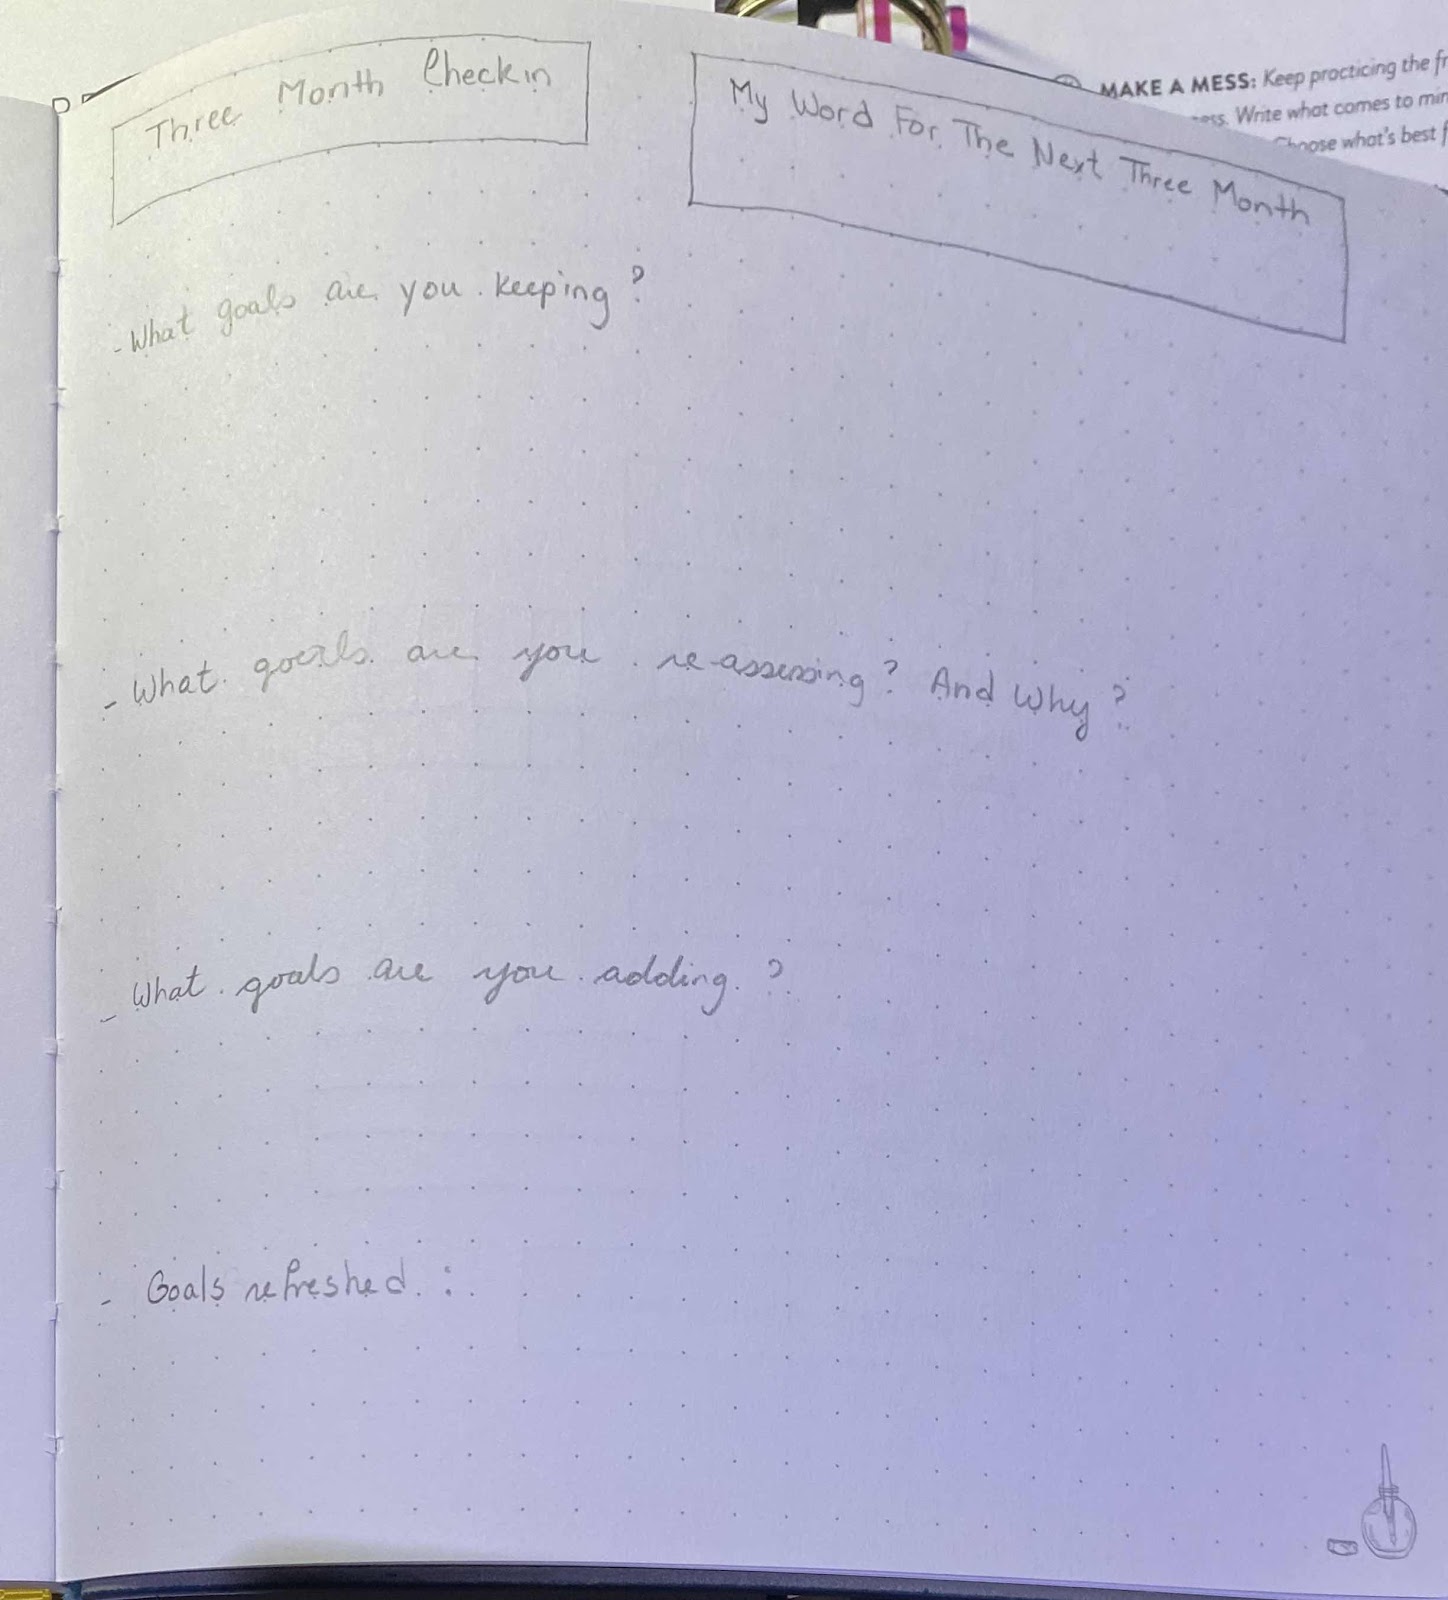 Three Month Checkin
My Word For The Next Three Month
MAKE A MESS: Keep practicing the
Write what comes to
Choose what's best
- What goals are you keeping?
- What goals are you re-assessing? And Why?
- What goals are you adding?
- Goals refreshed :